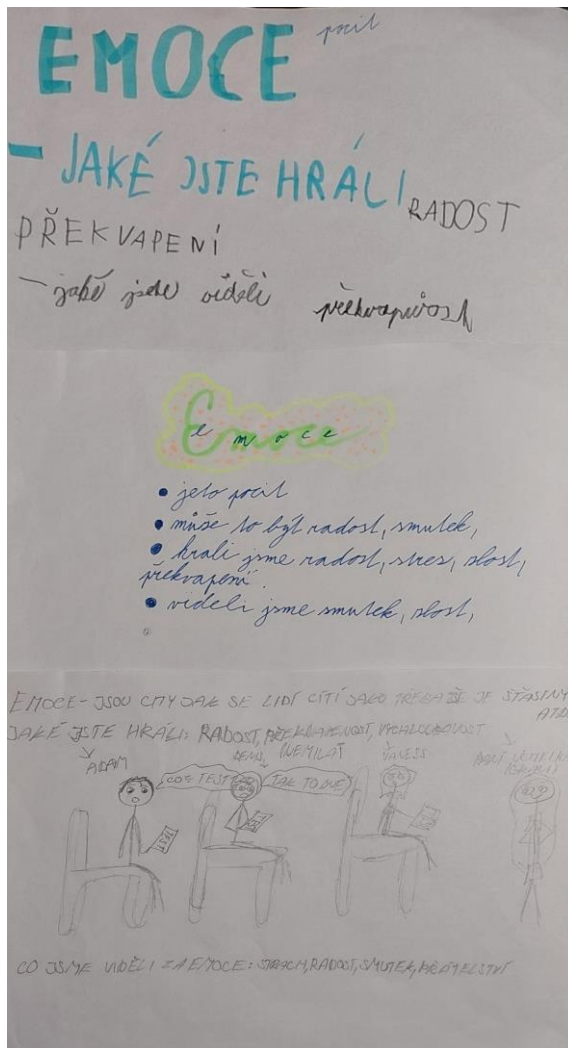 EMOCE pocit
- JAKÉ JSTE HRÁLI
RADOST
PŘEKVAPENÍ
- jaké jste viděli překvapivost
Emoce
• jeto pocit
• může to být radost, smutek,
• hrali jsme radost, stres, zlost,
překvapení.
• videli jsme smutek, zlost,
EMOCE - JSOU CITY JAK SE LIDÍ CÍTÍ JAKO TŘEBA ŽE JE ŠŤASTNÝ
ATD
JAKÉ JSTE HRÁLI: RADOST, PŘEKVAPENOST, VYCHLOUBAVOST
ADAM
COŽE TEST
TAK TO NE
TEST
CO JSME VIDĚLI ZA EMOCE: STRACH, RADOST, SMUTEK, PŘÁTELSTVÍ